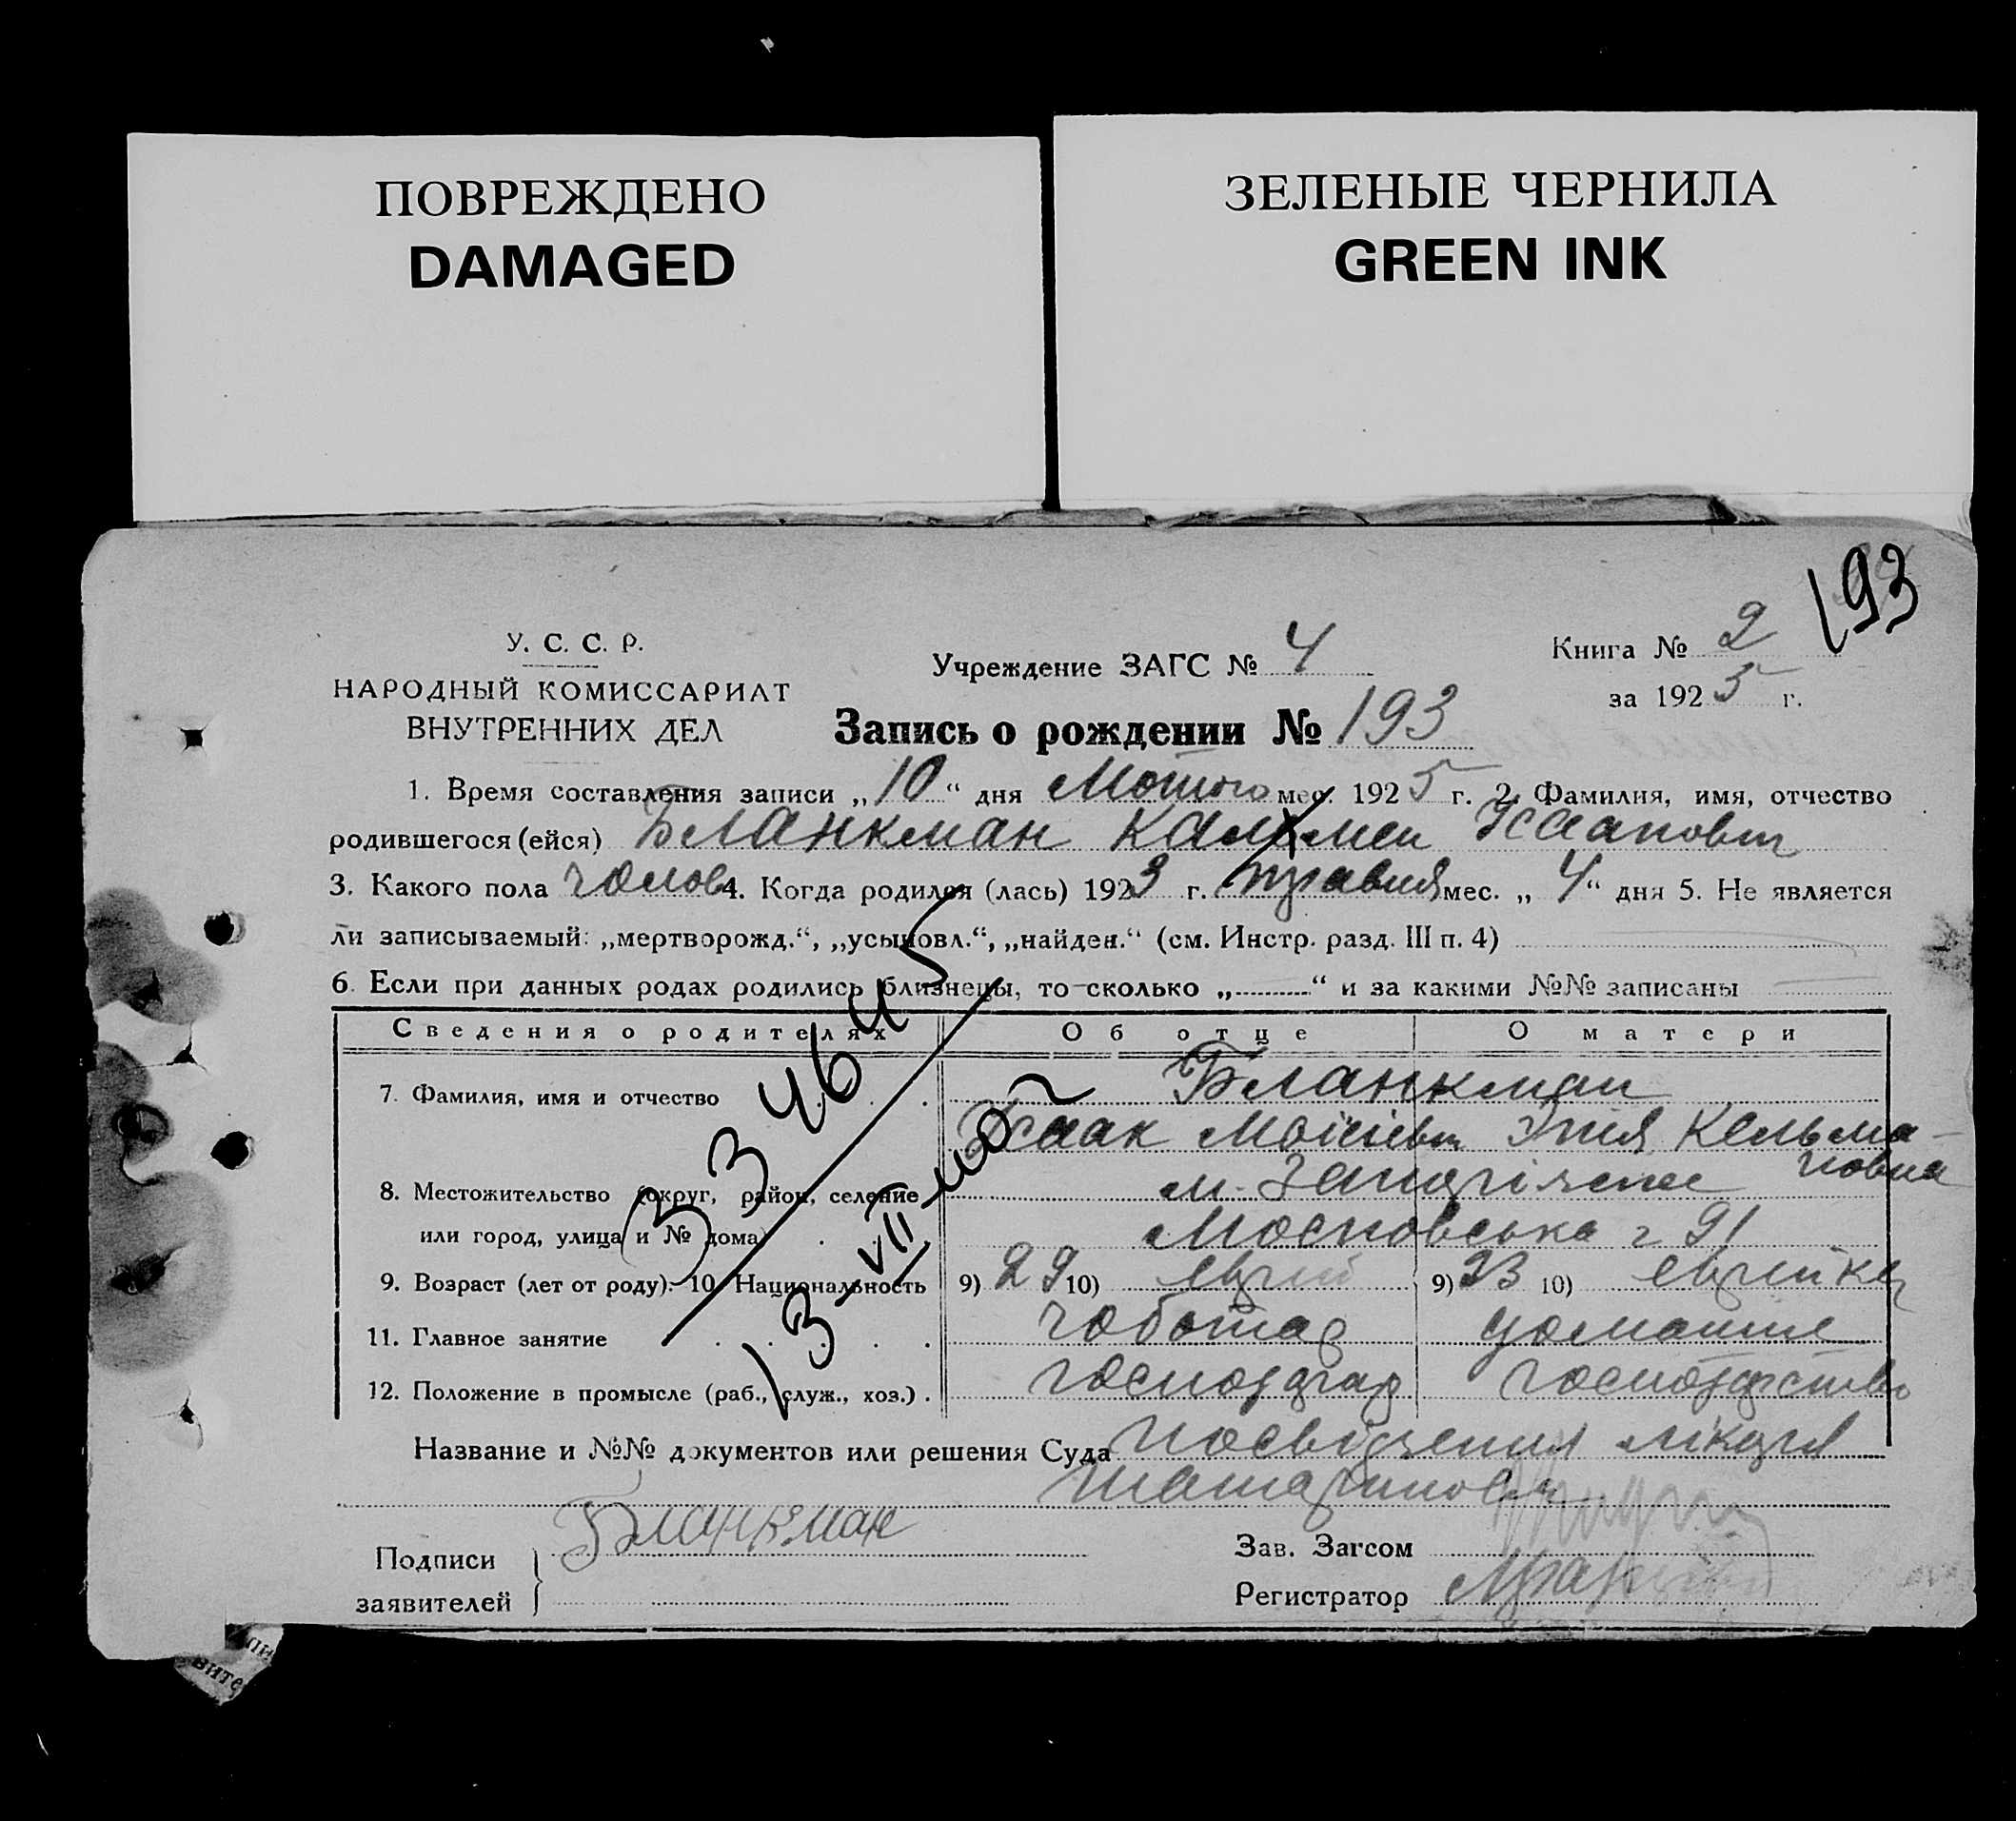 ПОВРЕЖДЕНО
DAMAGED
ЗЕЛЕНЫЕ ЧЕРНИЛА
GREEN INK
193
У. С. С. Р.
НАРОДНЫЙ КОМИССАРИАТ
ВНУТРЕННИХ ДЕЛ
Учреждение ЗАГС № 4
Книга № 2
за 1925 г.
Запись о рождении № 193
1. Время составления записи „10“ дня Лютого мес. 1925 г. 2. Фамилия, имя, отчество
родившегося (ейся) Бланкман Кальмен Ісаакович
3. Какого пола чолов 4. Когда родился (лась) 1923 г. травня мес. „4“ дня 5. Не является
ли записываемый: „мертворожд.“, „усыновл.“, „найден.“ (см. Инстр. разд. III п. 4)
6. Если при данных родах родились близнецы, то сколько „ “ и за какими №№ записаны
Сведения о родителях Об отце О матери
7. Фамилия, имя и отчество Бланкман
Ісаак Мойсієвич Кельма-
новна
8. Местожительство (округ, район, селение м.
или город, улица и № дома) Московська 91
9. Возраст (лет от роду). 10. Национальность 9) 29 10) еврей 9) 23 10) еврейка
11. Главное занятие чоботар домашнє
12. Положение в промысле (раб., служ., хоз.) господар господарство
Название и №№ документов или решения Суда посвідчення лікаря
Подписи
заявителей
Бланкман
Зав. Загсом
Регистратор
334645
13-VII